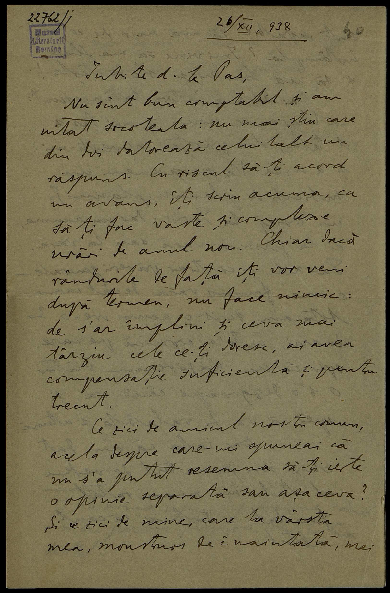 22762/1
26/XII, 938
Muzeul
Literaturii
Române
Iubite d-le Pas,
Nu sînt bun comptabil și am
uitat socoteala: nu mai știu care
din doi datorează celuilalt un
răspuns. Cu riscul să-ți acord
un avans, îți scriu acuma, ca
să-ți fac vaste și complexe
urări de anul nou. Chiar dacă
rândurile de față îți vor veni
după termen, nu face nimic:
de s'ar împlini și ceva mai
târziu cele ce-ți doresc, ai avea
compensație suficientă și pentru
trecut.
Ce zici de amicul nostru comun,
acela despre care-mi spuneai că
nu s'a putut resemna să-ți
o opinie separată sau așa ceva?
Și ce zici de mine, care la vârsta
mea, monstruos de înaintată, mai